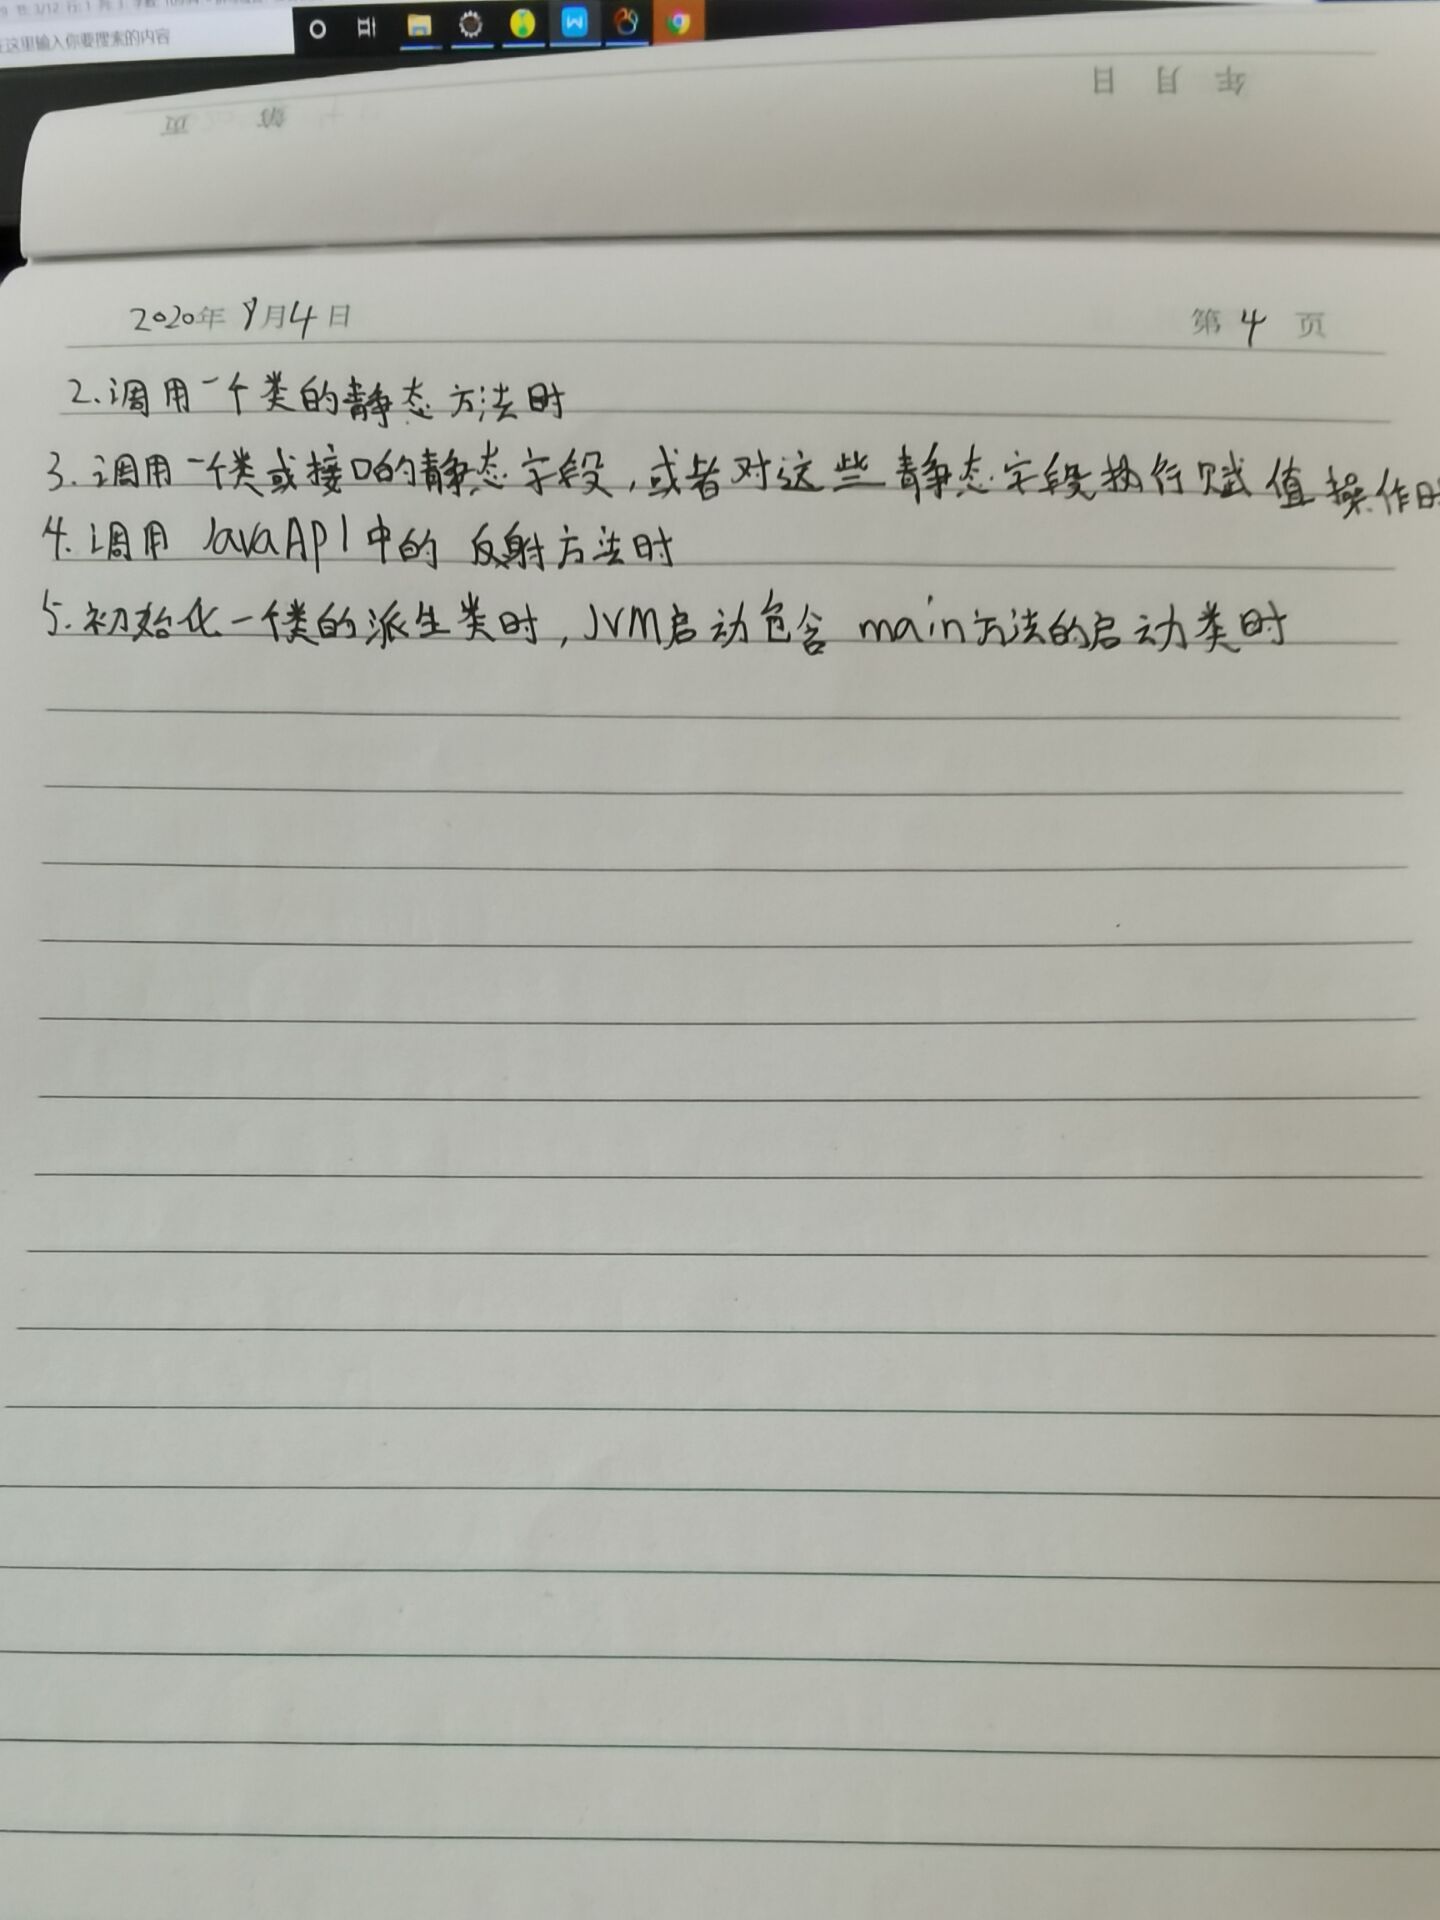 在这里输入你要搜索的内容
年 月 日
第 页
2020年 9月4日
第 4 页
2.调用一个类的静态方法时
3.调用一个类或接口的静态字段,或者对这些静态字段执行赋值操作时
4.调用 JavaAPI中的 反射方法时
5.初始化一个类的派生类时,JVM启动包含 main方法的启动类时